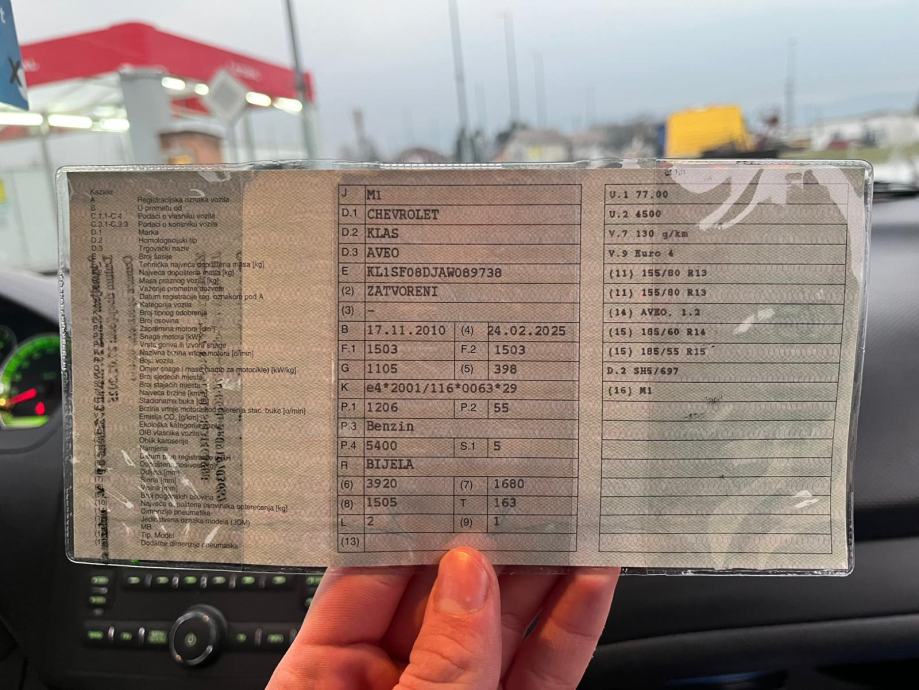 Kazalo
A Registracijska oznaka vozila
B U prometu od
C.1.1-C.4 Podaci o vlasniku vozila
C.3.1-C.3.3 Podaci o korisniku vozila
D.1 Marka
D.2 Homologacijski tip
D.3 Trgovački naziv
Broj šasije
Tehnička najveća dopuštena masa [kg]
Najveća dopuštena masa [kg]
Masa praznog vozila [kg]
Važenje prometne dozvole
Datum registracije reg. oznakom pod A
Kategorija vozila
Broj tipnog odobrenja
Broj osovina
Zapremina motora
Snaga motora [kW]
Vrsta goriva ili izvora snage
Nazivna brzina vrtnje motora [o/min]
Boja vozila
Omjer snage i mase (samo za motocikle) [kW/kg]
Broj sjedećih mjesta
Broj stajaćih mjesta
Najveća brzina
Stacionarna buka
Emisija CO₂ [g/km]
Ekološka kategorija vozila
OIB vlasnika vozila
Oblik karoserije
Namjena
Datum prve registracije
Dužina [mm]
Širina [mm]
Visina [mm]
Broj pogonskih osovina
Dimenzije pneumatika
Jedinstvena oznaka modela (JOM)
MB
Tip, Model
Dodatne dimenzije pneumatika
J M1
D.1 CHEVROLET
D.2 KLAS
D.3 AVEO
E KL1SF08DJAW089738
(2) ZATVORENI
(3) –
B 17.11.2010 (4) 24.02.2025
F.1 1503 F.2 1503
G 1105 (5) 398
K e4*2001/116*0063*29
P.1 1206 P.2 55
P.3 Benzin
P.4 5400 S.1 5
R BIJELA
(6) 3920 (7) 1680
(8) 1505 T 163
L 2 (9) 1
(13)
U.1 77.00
U.2 4500
V.7 130 g/km
V.9 Euro 4
(11) 155/80 R13
(11) 155/80 R13
(14) AVEO, 1.2
(15) 185/60 R14
(15) 185/55 R15
D.2 SH5/697
(16) M1